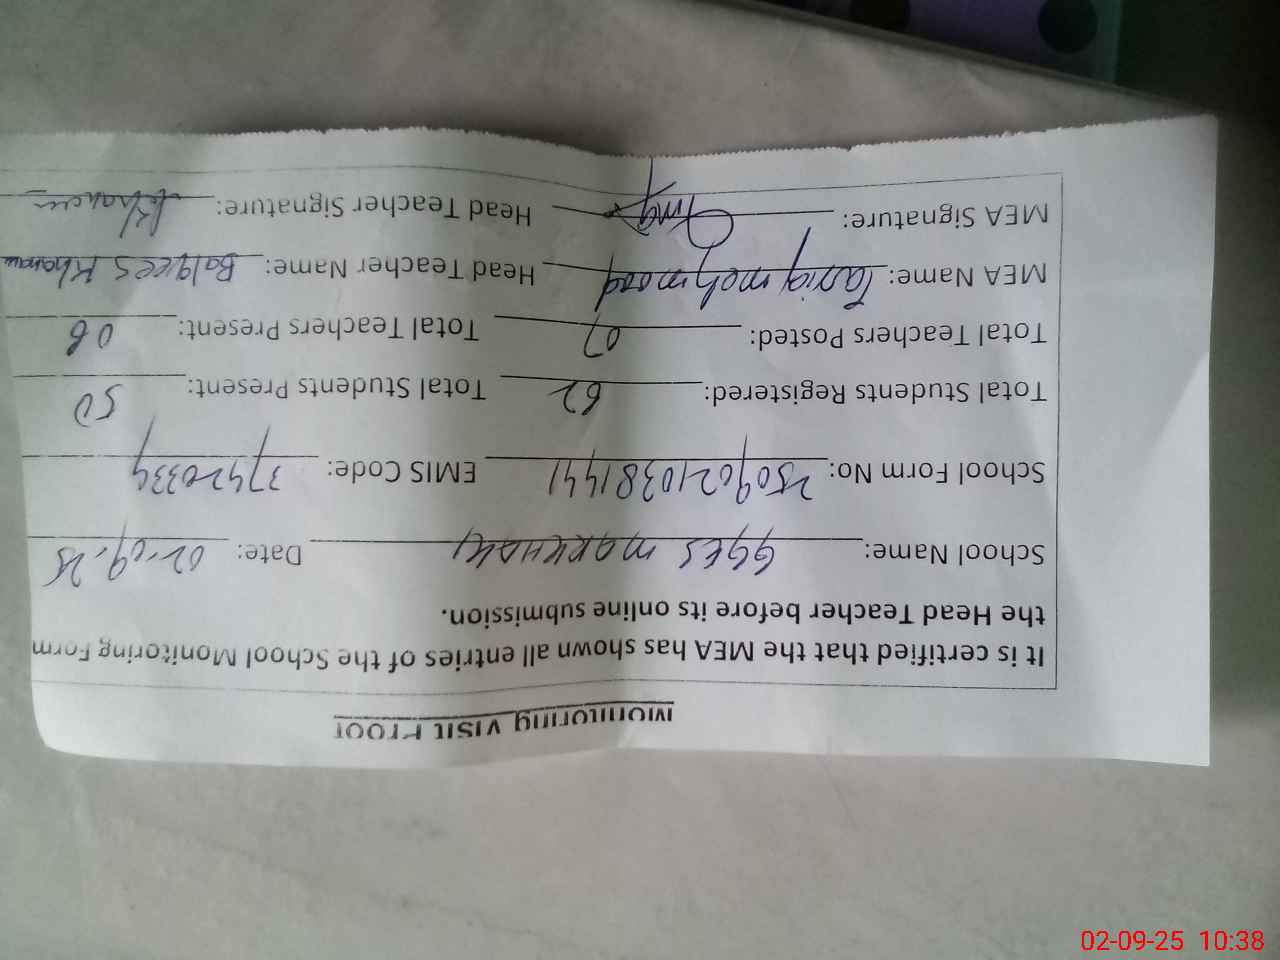 Monitoring Visit Proof
It is certified that the MEA has shown all entries of the School Monitoring Form
the Head Teacher before its online submission.
School Name: GGES MARKHAL Date: 02-09-25
School Form No: 25090210381441 EMIS Code: 37420334
Total Students Registered: 62 Total Students Present: 50
Total Teachers Posted: 07 Total Teachers Present: 06
MEA Name: Tariq mehmood Head Teacher Name: Balqees Khanam
MEA Signature: Head Teacher Signature:
02-09-25 10:38